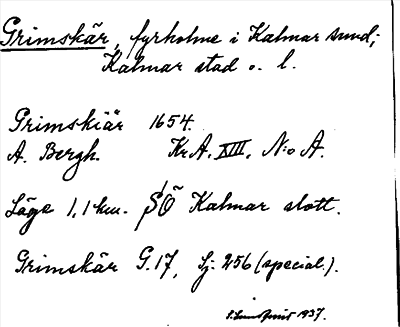 Grimskär, fyrholme i Kalmar sund;
Kalmar stad o. l.
Grimskiär 1654.
A. Bergh. Kr.A. XIII. N:o A.
Läge 1,1 km. SÖ Kalmar slott.
Grimskär G.17, Sj. 256 (special.).
1937.